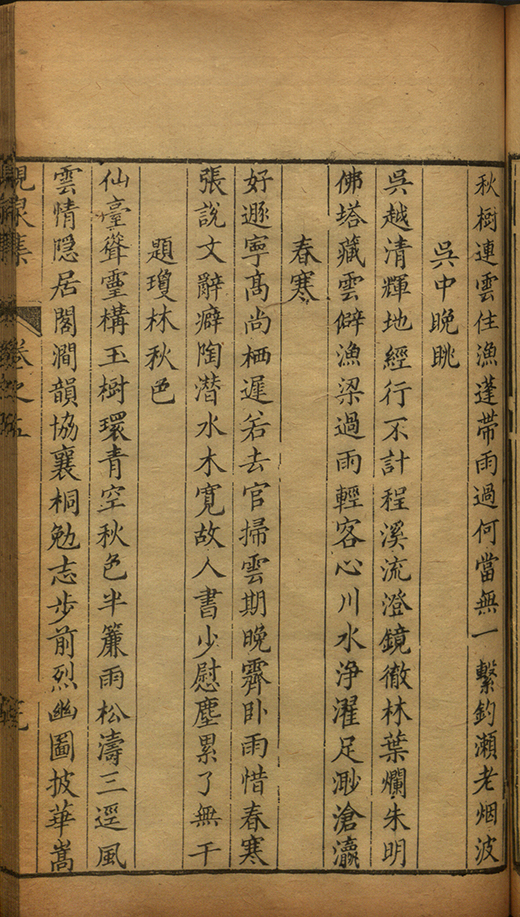 秋樹連雲住漁蓬帶雨過何當無一繫釣瀨老烟波
吳中晚眺
吳越清輝地經行不計程溪流澄鏡徹林葉爛朱明
佛塔藏雲僻漁梁過雨輕客心川水净濯足渺滄瀛
春寒
好遯寧高尚栖遲若去官掃雲期晚霽臥雨惜春寒
張說文辭癖陶潛水木寬故人書少慰塵累了無干
題瓊林秋色
仙臺聳靈構玉樹環青空秋色半簾雨松濤三逕風
雲情隐居閣澗韻協襄桐勉志步前烈幽圖披華嵩
集
卷之五